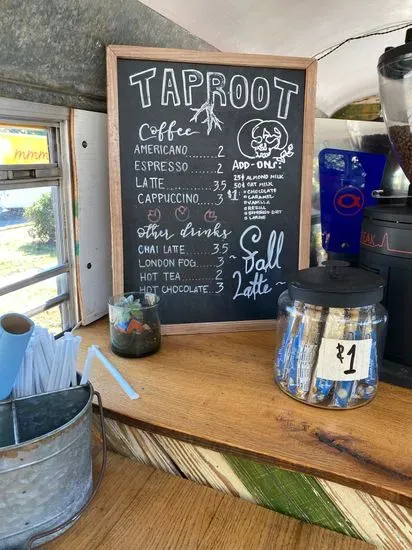 TAPROOT
Coffee
AMERICANO ....... 2
ESPRESSO ....... 2
LATTE ........... 3.5
CAPPUCCINO... 3
other drinks
CHAI LATTE ...... 3.5
LONDON FOG ..... 3
HOT TEA ......... 2
HOT CHOCOLATE.. 3
ADD-ONS
25¢ ALMOND MILK
50¢ OAT MILK
$1
CHOCOLATE
CARAMEL
VANILLA
REFILL
Fall
~ Latte ~
5
$1
mmm
EAK